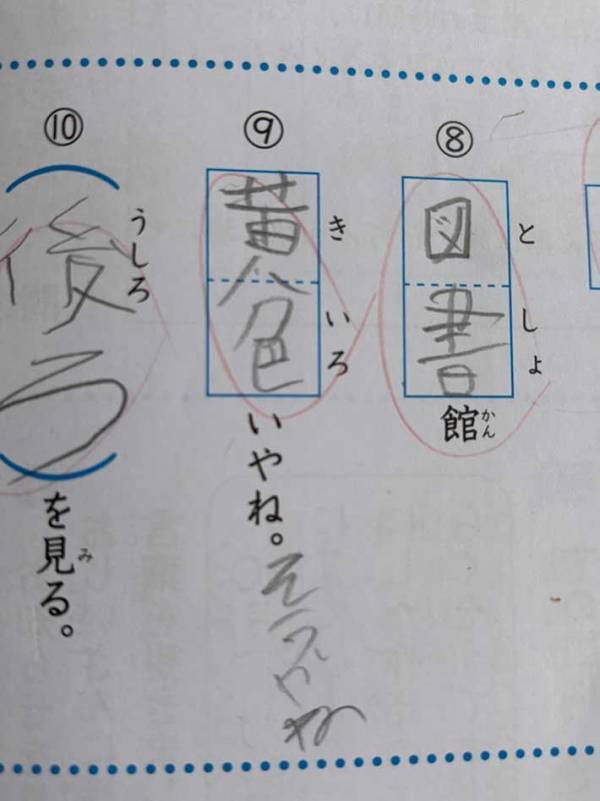 ⑧
としょ
図書館
かん
⑨
きいろ
黄色いやね。そうやね
⑩
うしろ
後ろを見る。
み